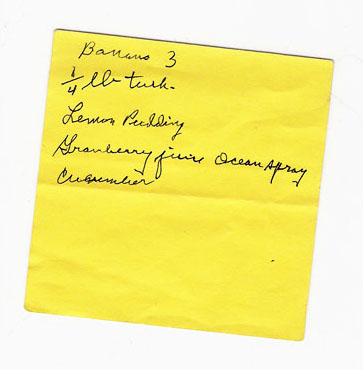 Banana 3
1/4 lb turk.
Lemon Pudding
Granberry juice Ocean Spray
Cucumber